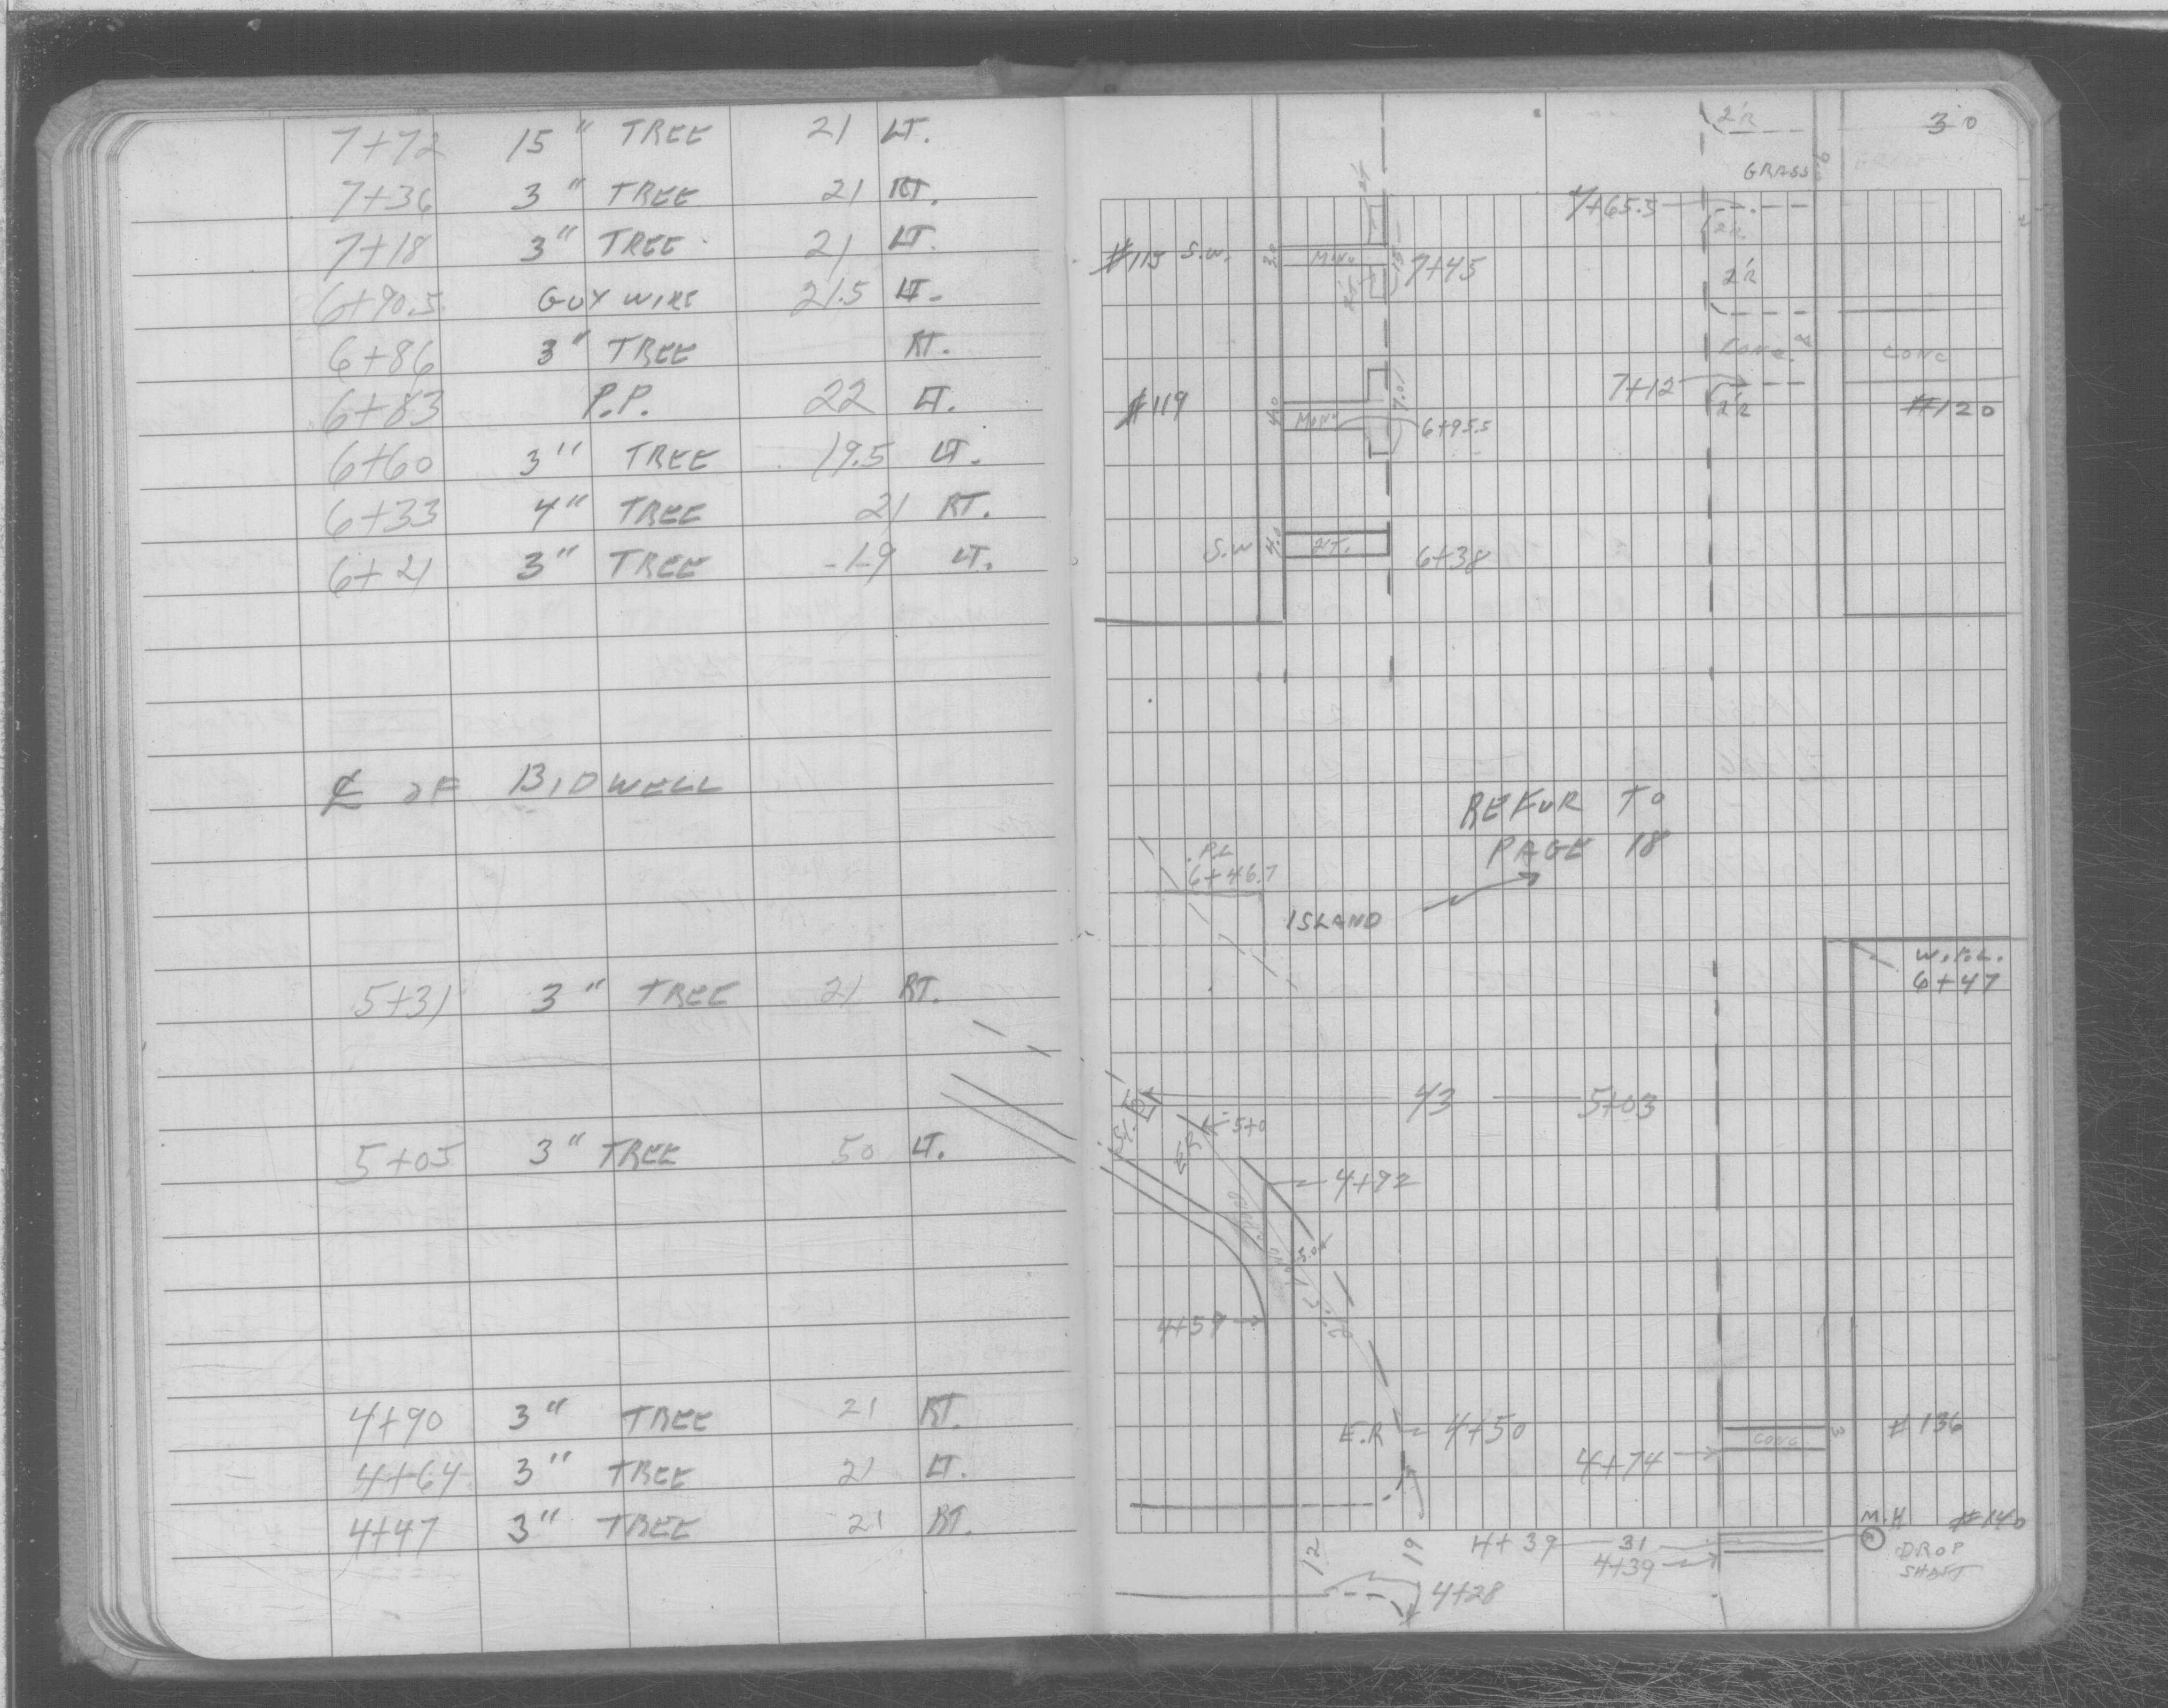 7+72 15" TREE 21 LT.
7+36 3" TREE 21 RT.
7+18 3" TREE 21 LT.
6+90.5 GUY WIRE 21.5 LT.
6+86 3" TREE RT.
6+83 P.P. 22 LT.
6+60 3" TREE 19.5 LT.
6+33 4" TREE 21 RT.
6+21 3" TREE 19 LT.
℄ OF BIDWELL
5+31 3" TREE 21 RT.
5+05 3" TREE 50 LT.
4+90 3" TREE 21 RT.
4+64 3" TREE 21 LT.
4+47 3" TREE 21 RT.
30
2'R
GRASS
7+65.5
2'R
#115 S.W. MONO 7+45
2'R
CONC. CONC
7+12
2'R
#119 4.0 MONO 7.0 6+95.5
#120
S.W 4.0 6+38
REFUR TO
PAGE 18
P.L
6+46.7
ISLAND
W.P.L.
6+47
43 5+03
E.R 5+0
4+92
4+59
E.R 4+50
4+74 CONC 3 #136
M.H #140
12 19 4+39 31
4+39
DROP
SHAFT
4+28